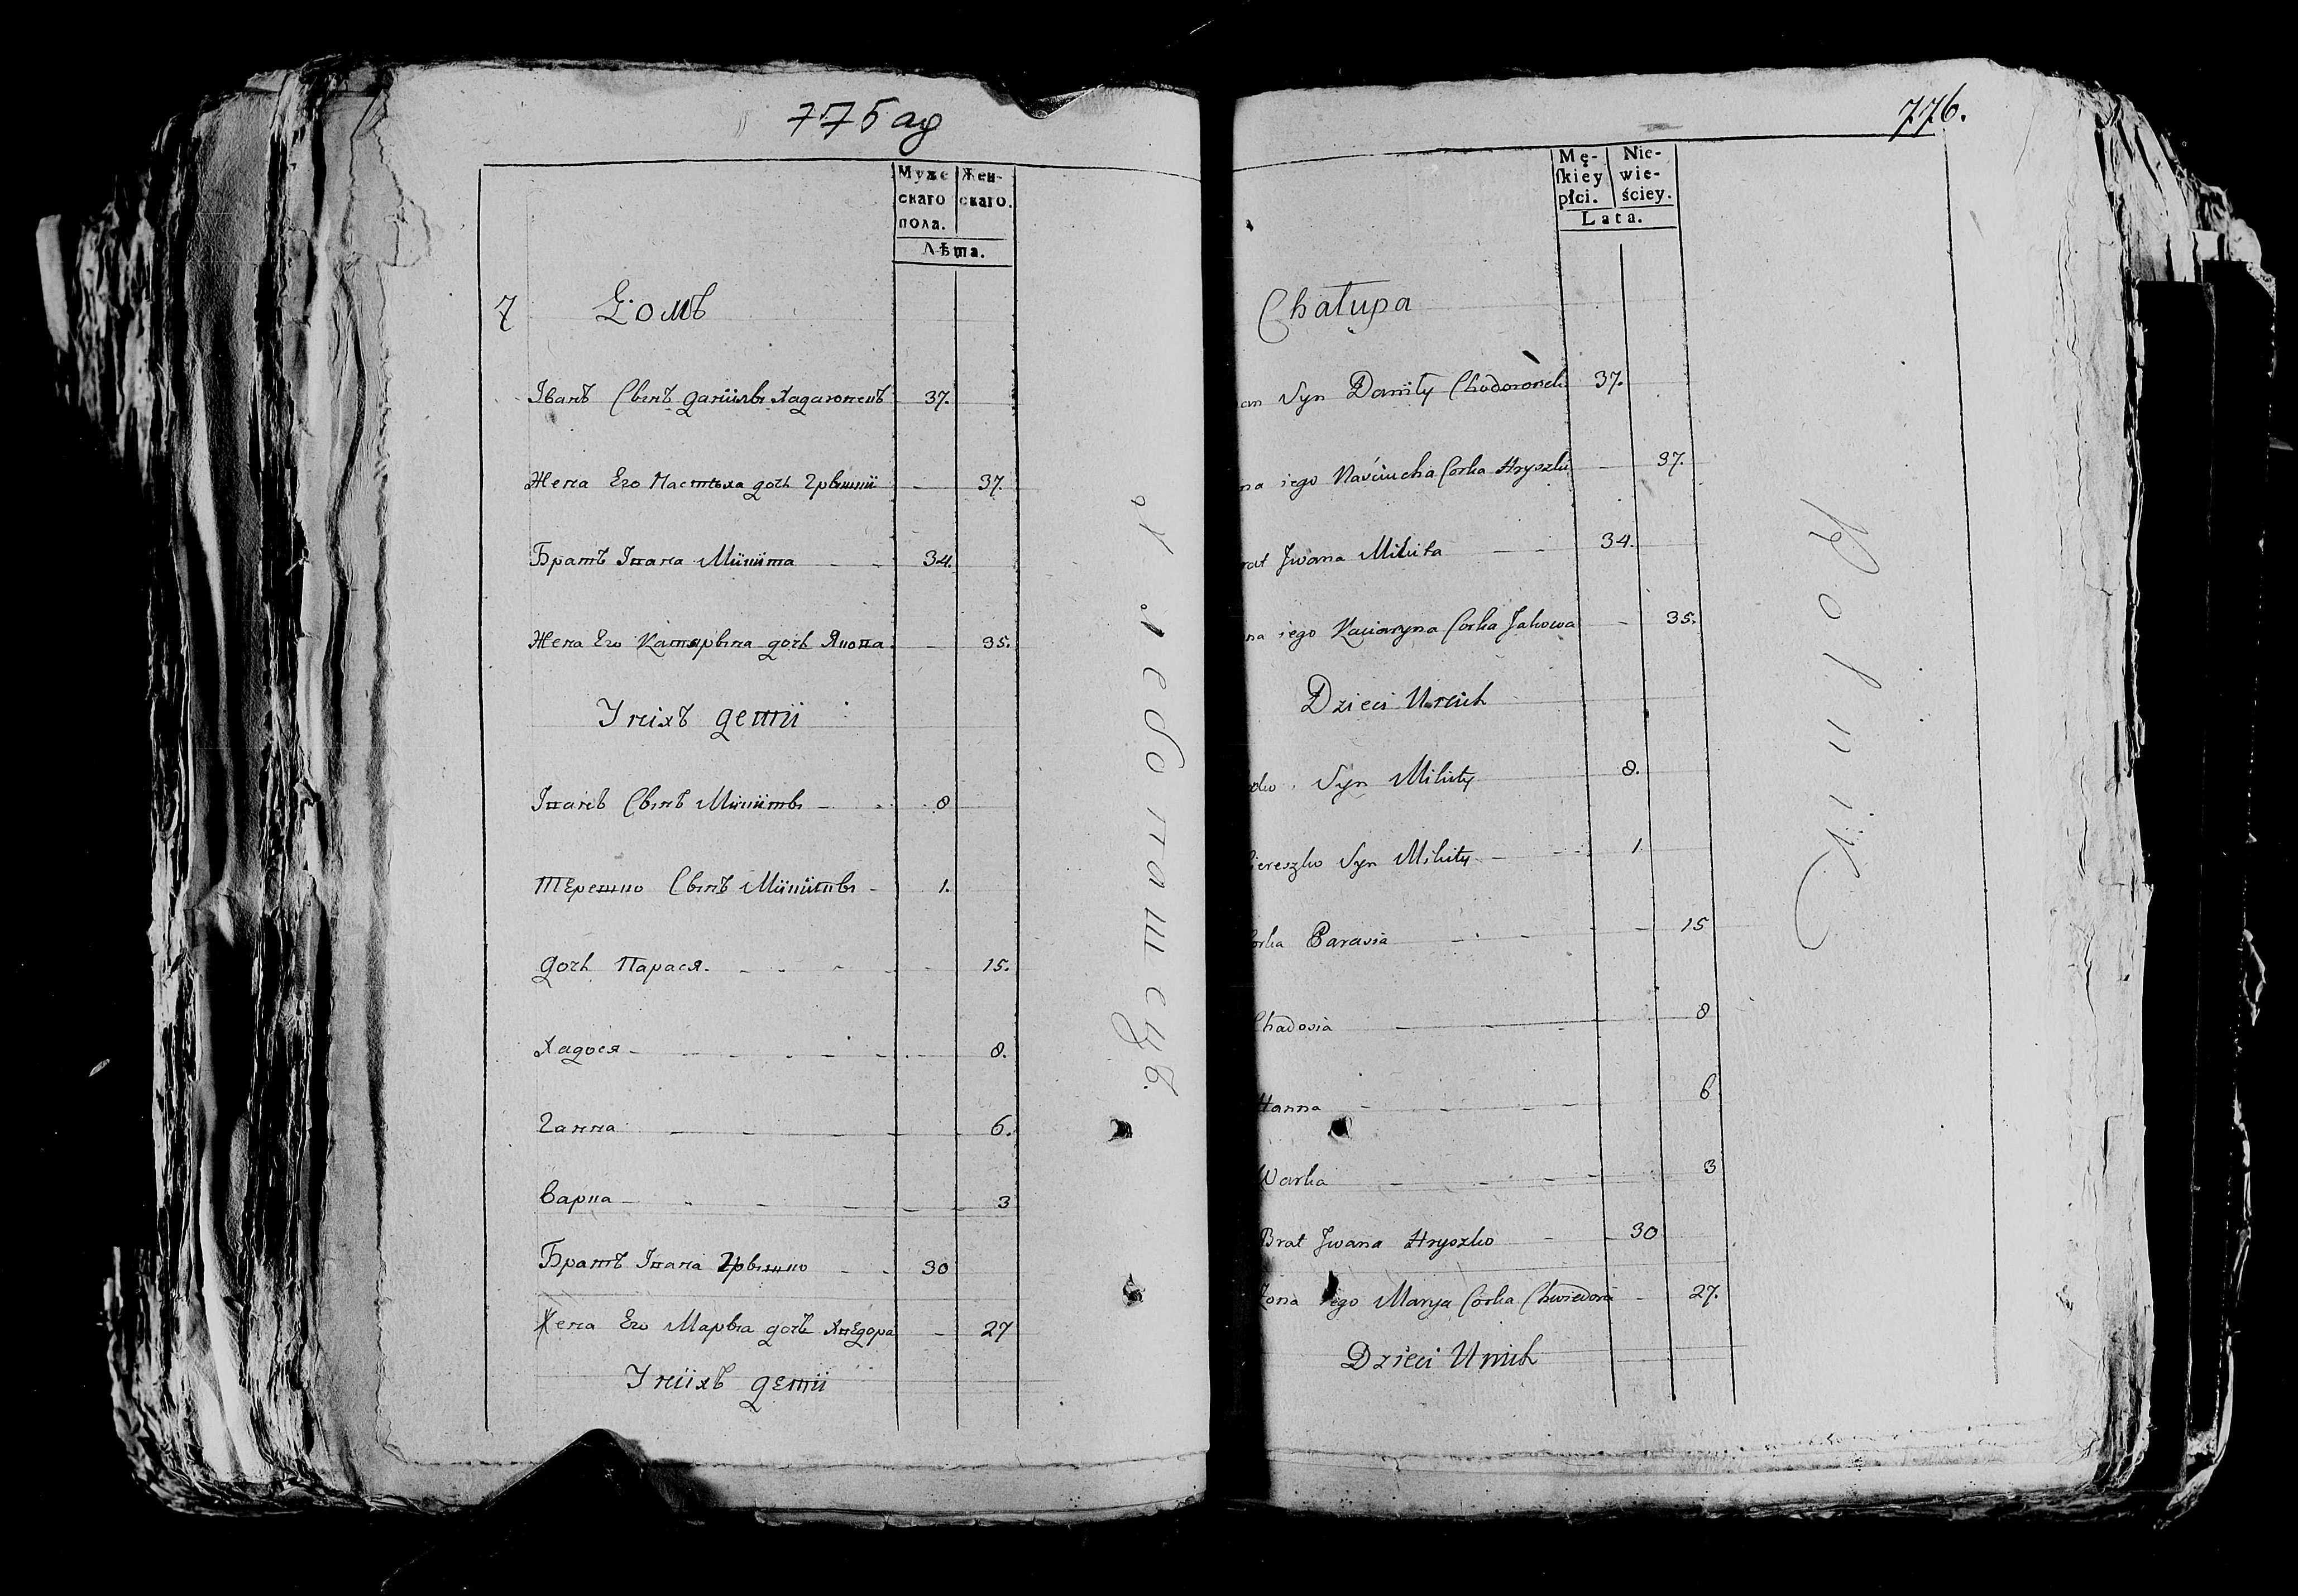 775 ag
Муже
скаго
пола.
Жен-
скаго.
Лѣта.
7 Домъ
Іванъ Сынъ Данiилы Хадаронекъ 37.
Жена Его Настьха дочь Грышкii 37.
Братъ Iвана Мiкiiта 34.
Жена Его Катярына дочь Якова 35.
У нiхъ детii
Iванъ Сынъ Мiкiiты 8
Терешко Сынъ Мiiкiiты 1.
Дочь Парася. 15.
Хадося 8.
Ганна 6.
Варка 3
Братъ Iвана Грышко 30
Жена Его Марыа дочь Хведора 27
У нiiхъ детii
хлебопашецъ.
776.
Mę-
ſkiey
płci.
Nie-
wie-
ściey.
Lata.
Chałupa
an Syn Daniły Chodoronek 37.
na iego Naściucha Corka Hryszki 37.
rat Jwana Mikita 34.
na iego Kaciaryna Corka Jakowa 35.
Dzieci Unich
Syn Mikity 8.
iereszko Syn Mikity 1
orka Parasia 15
Chadosia 8
Hanna 6
Warka 3
Brat Jwana Hryszko 30
Żona iego Marya Corka Chwiedora 27.
Dzieci Unich
Rolnik